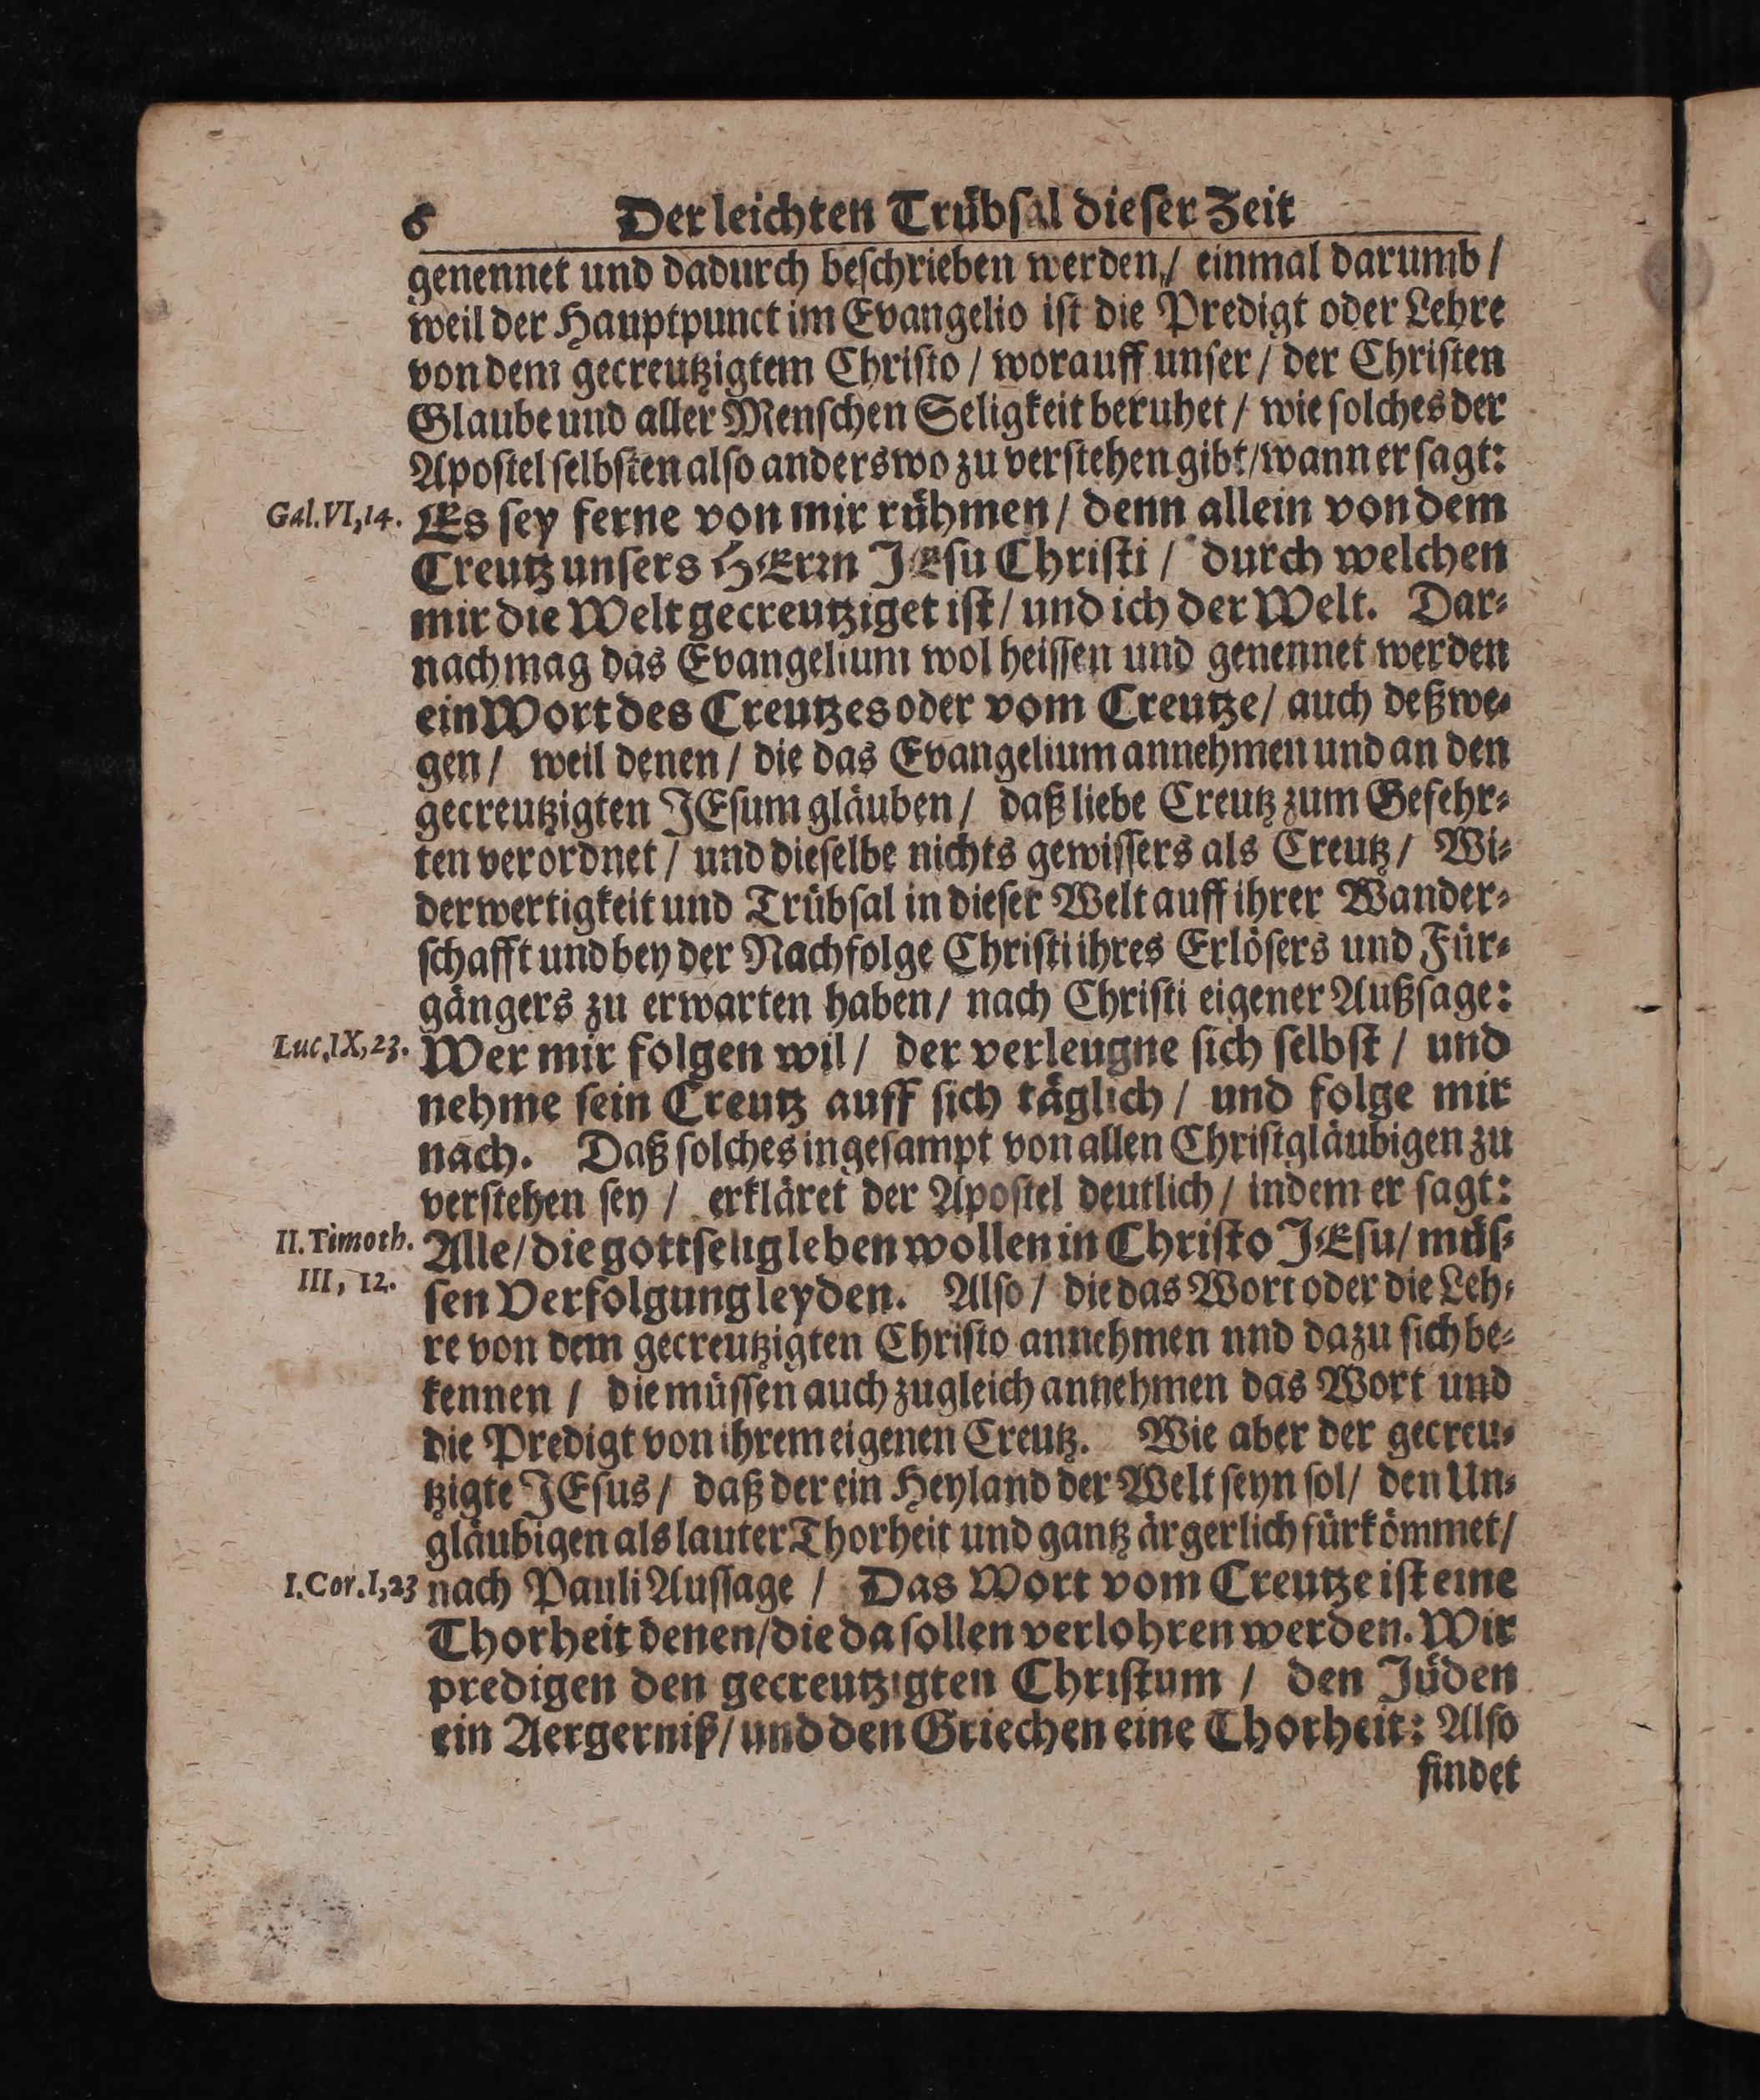 6 Der leichten Trübsal dieser Zeit
genennet und dadurch beschrieben werden/ einmal darumb/
weil der Hauptpunct im Evangelio ist die Predigt oder Lehre
von dem gecreutzigtem Christo/ worauff unser/ der Christen
Glaube und aller Menschen Seligkeit beruhet/ wie solches der
Apostel selbsten also anderswo zu verstehen gibt/wann er sagt:
Gal. VI, 14. Es sey ferne von mir rühmen/ denn allein von dem
Creutz unsers HErrn JEsu Christi/ durch welchen
mir die Welt gecreutziget ist/ und ich der Welt. Dar-
nach mag das Evangelium wol heissen und genennet werden
ein Wort des Creutzes oder vom Creutze/ auch deßwe-
gen/ weil denen/ die das Evangelium annehmen und an den
gecreutzigten JEsum gläuben/ daß liebe Creutz zum Gefehr-
ten verordnet/ und dieselbe nichts gewissers als Creutz/ Wi-
derwertigkeit und Trübsal in dieser Welt auff ihrer Wander-
schafft und bey der Nachfolge Christi ihres Erlösers und Für-
gängers zu erwarten haben/ nach Christi eigener Außsage:
Luc. IX, 23. Wer mir folgen wil/ der verleugne sich selbst/ und
nehme sein Creutz auff sich täglich/ und folge mir
nach. Daß solches ingesampt von allen Christgläubigen zu
verstehen sey/ erkläret der Apostel deutlich/ indem er sagt:
II. Timoth. Alle/ die gottselig leben wollen in Christo JEsu/ müs-
III, 12. sen Verfolgung leyden. Also/ die das Wort oder die Leh-
re von dem gecreutzigten Christo annehmen nnd dazu sich be-
kennen/ die müssen auch zugleich annehmen das Wort und
die Predigt von ihrem eigenen Creutz. Wie aber der gecreu-
tzigte JEsus/ daß der ein Heyland der Welt seyn sol/ den Un-
gläubigen als lauter Thorheit und gantz ärgerlich fürkömmet/
I. Cor. I, 23 nach Pauli Aussage/ Das Wort vom Creutze ist eine
Thorheit denen/ die da sollen verlohren werden. Wir
predigen den gecreutzigten Christum/ den Jüden
ein Aergerniß/ und den Griechen eine Thorheit: Also
findet